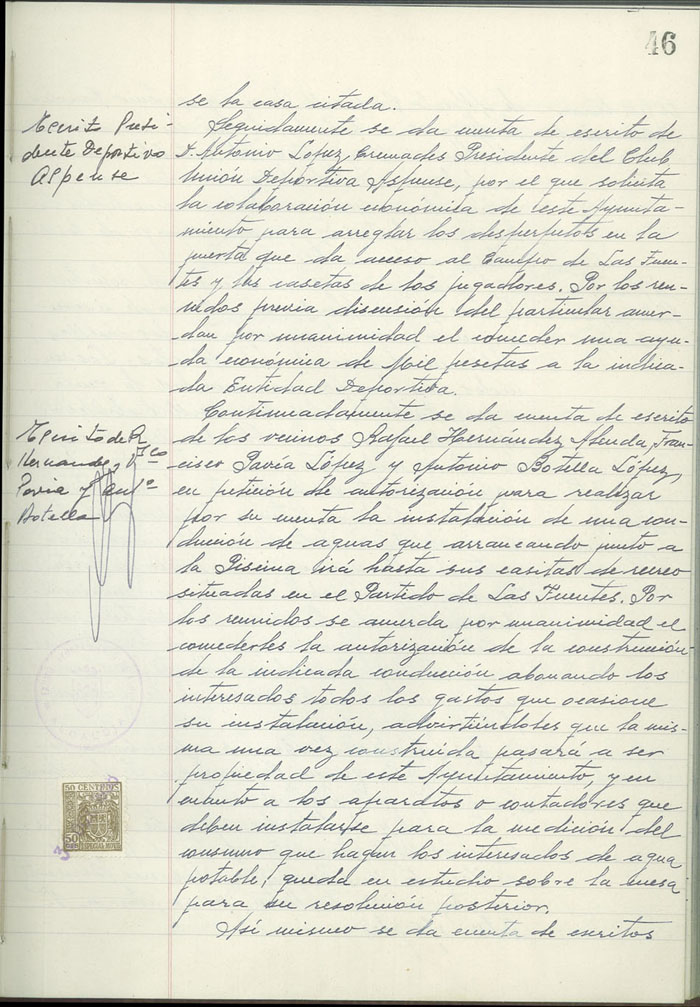 46
se la casa citada.
Escrito Presi-
dente Deportivo
Aspense
Seguidamente se da cuenta de escrito de
D. Antonio López Cremades Presidente del Club
Unión Deportiva Aspense, por el que solicita
la colaboración económica de este Ayunta-
miento para arreglar los desperfectos en la
puerta que da acceso al Campo de Las Fuen-
tes y las casetas de los jugadores. Por los reu-
nidos previa discusión del particular acuer-
dan por unanimidad el conceder una ayu-
da económica de Mil pesetas a la indica-
da Entidad Deportiva.
Escrito de R.
Hernandez, Fco
Pavia y Antº
Botella
Continuadamente se da cuenta de escrito
de los vecinos Rafael Hernández Alenda, Fran-
cisco Pavía López y Antonio Botella López,
en petición de autorización para realizar
por su cuenta la instalación de una con-
ducción de aguas que arrancando junto a
la Piscina irá hasta sus casitas de recreo
situadas en el Partido de Las Fuentes. Por
los reunidos se acuerda por unanimidad el
concederles la autorización de la construcción
de la indicada conducción abonando los
interesados todos los gastos que ocasione
su instalación, advirtiéndoles que la mis-
ma una vez construida pasará a ser
propiedad de este Ayuntamiento, y en
cuanto a los aparatos o contadores que
deben instalarse para la medición del
consumo que hagan los interesados de agua
potable, queda en estudio sobre la mesa
para su resolución posterior.
Así mismo se da cuenta de escritos
50 CENTIMOS
50
ESPECIAL MOVIL